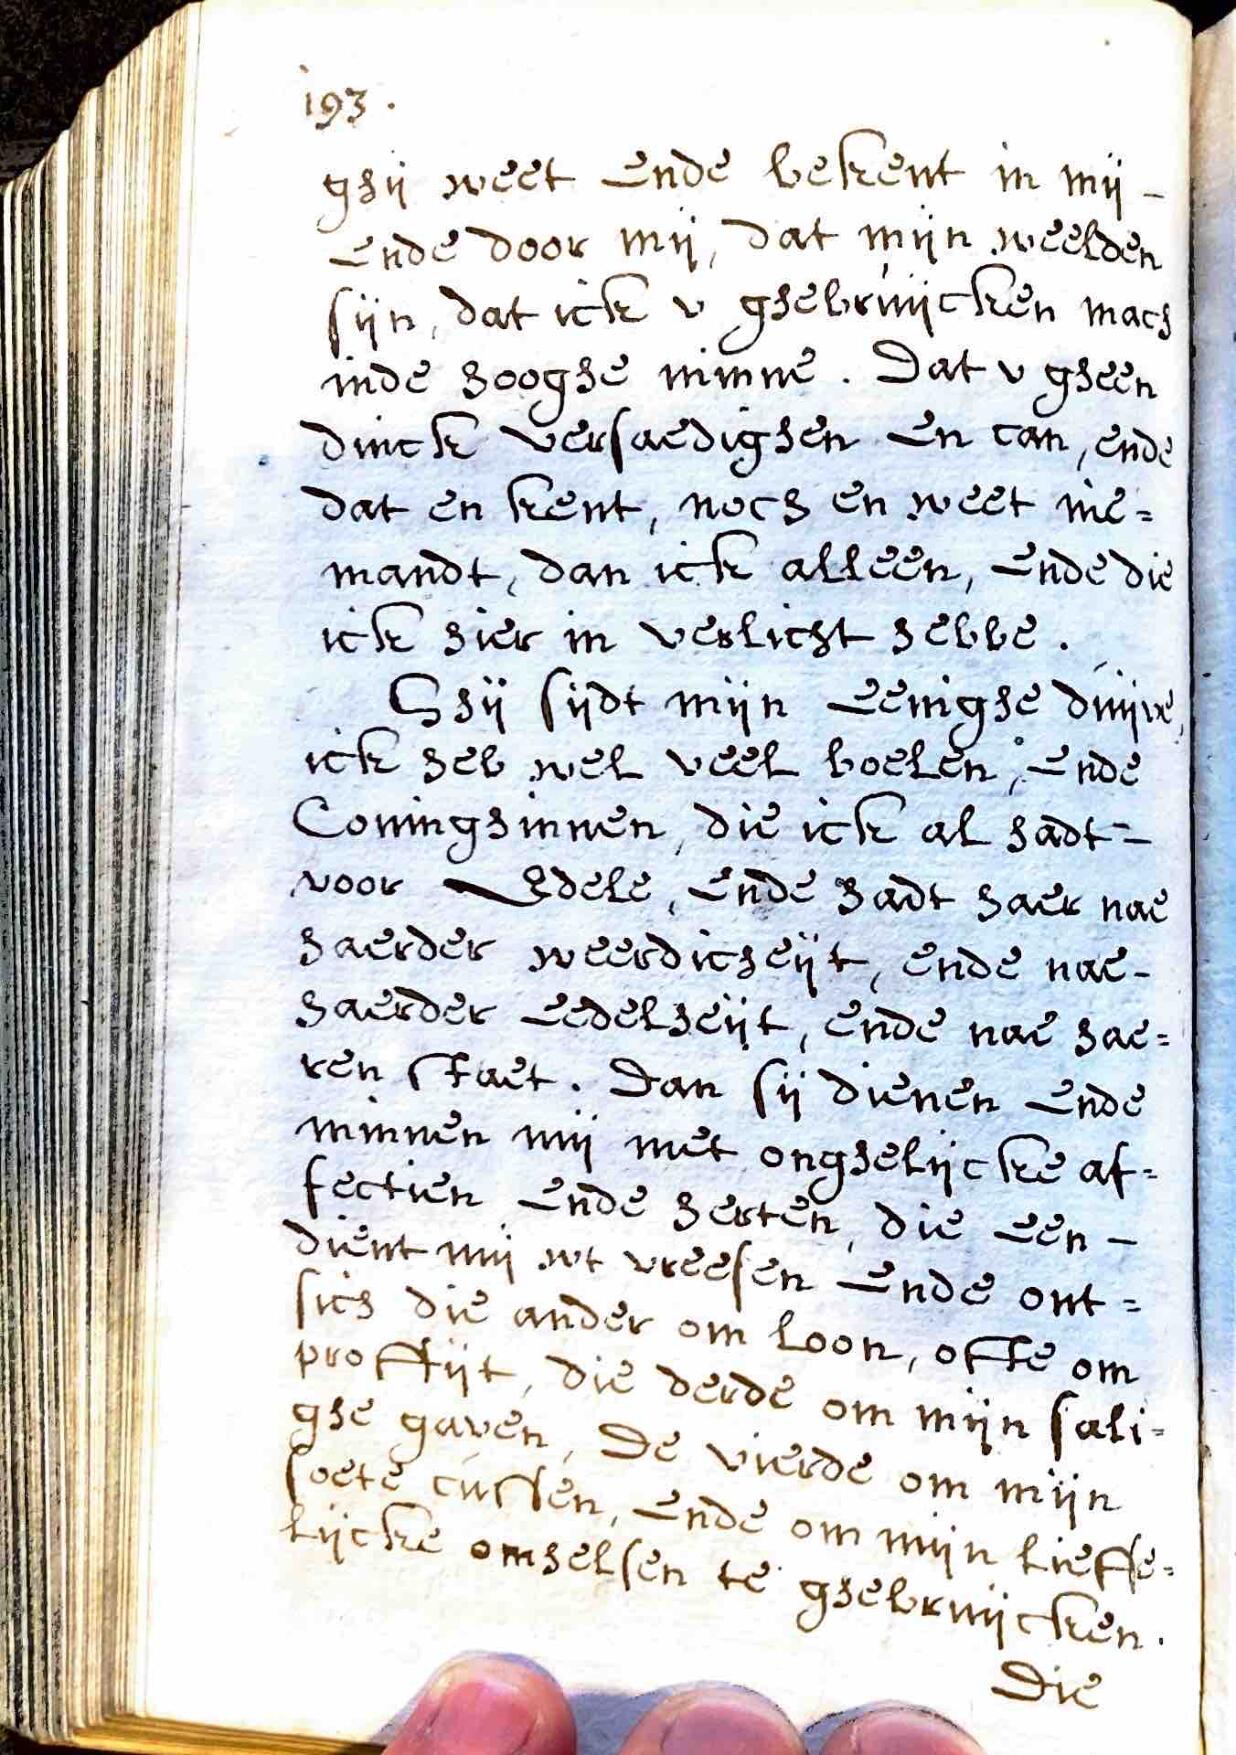 193.
ghij weet ende bekent in mij -
ende door mij, dat mijn weelden
sijn, dat ick v ghebruijcken mach
inde hooghe minne. Dat v gheen
dinck versaedighen en can, ende
dat en kent, noch en weet nie=
mandt, dan ick alleen, ende die
ick hier in verlicht hebbe.
Ghij sijdt mijn eenighe duijve,
ick heb wel veel boelen, ende
Coninghinnen, die ick al hadt=
voor Edele, ende hadt haer nae
haerder weerdicheijt, ende nae-
haerder eedelheijt, ende nae hae=
ren staet. Dan sij dienen ende
minnen mij met onghelijcke af=
fectien ende herten, die een -
dient mij wt vreesen ende ont=
sich die ander om loon, ofte om
proffijt, die derde om mijn sali=
ghe gaven, De vierde om mijn
soete cussen, ende om mijn lieffe=
lijcke omhelsen te ghebruijcken.
Die